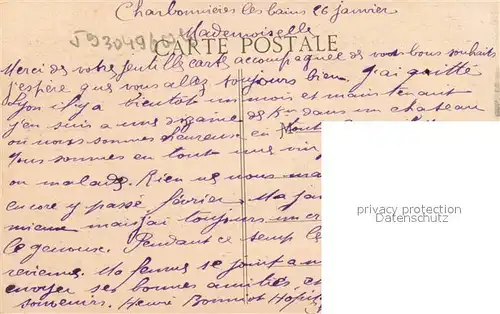 Charbonnières les bains 26 janvier
Mademoiselle
CARTE POSTALE
Merci de votre gentille carte accompagnée de vos bons souhaits
j'espère que vous allez toujours bien. j'ai quitté
Lyon il y a bientôt un mois et maintenant
j'en suis a une dizaine de Km dans un chateau
ou nous sommes heureux en
Nous sommes en tout une
ou malades. Rien ne nous
encore y passé février. Ma
mieux mais j'ai toujours un
le genoux. Pendant ce temp
revienne. Ma femme se joint a
envoyer ses bonnes amitiés,
souvenirs. Henri
privacy protection
Datenschutz